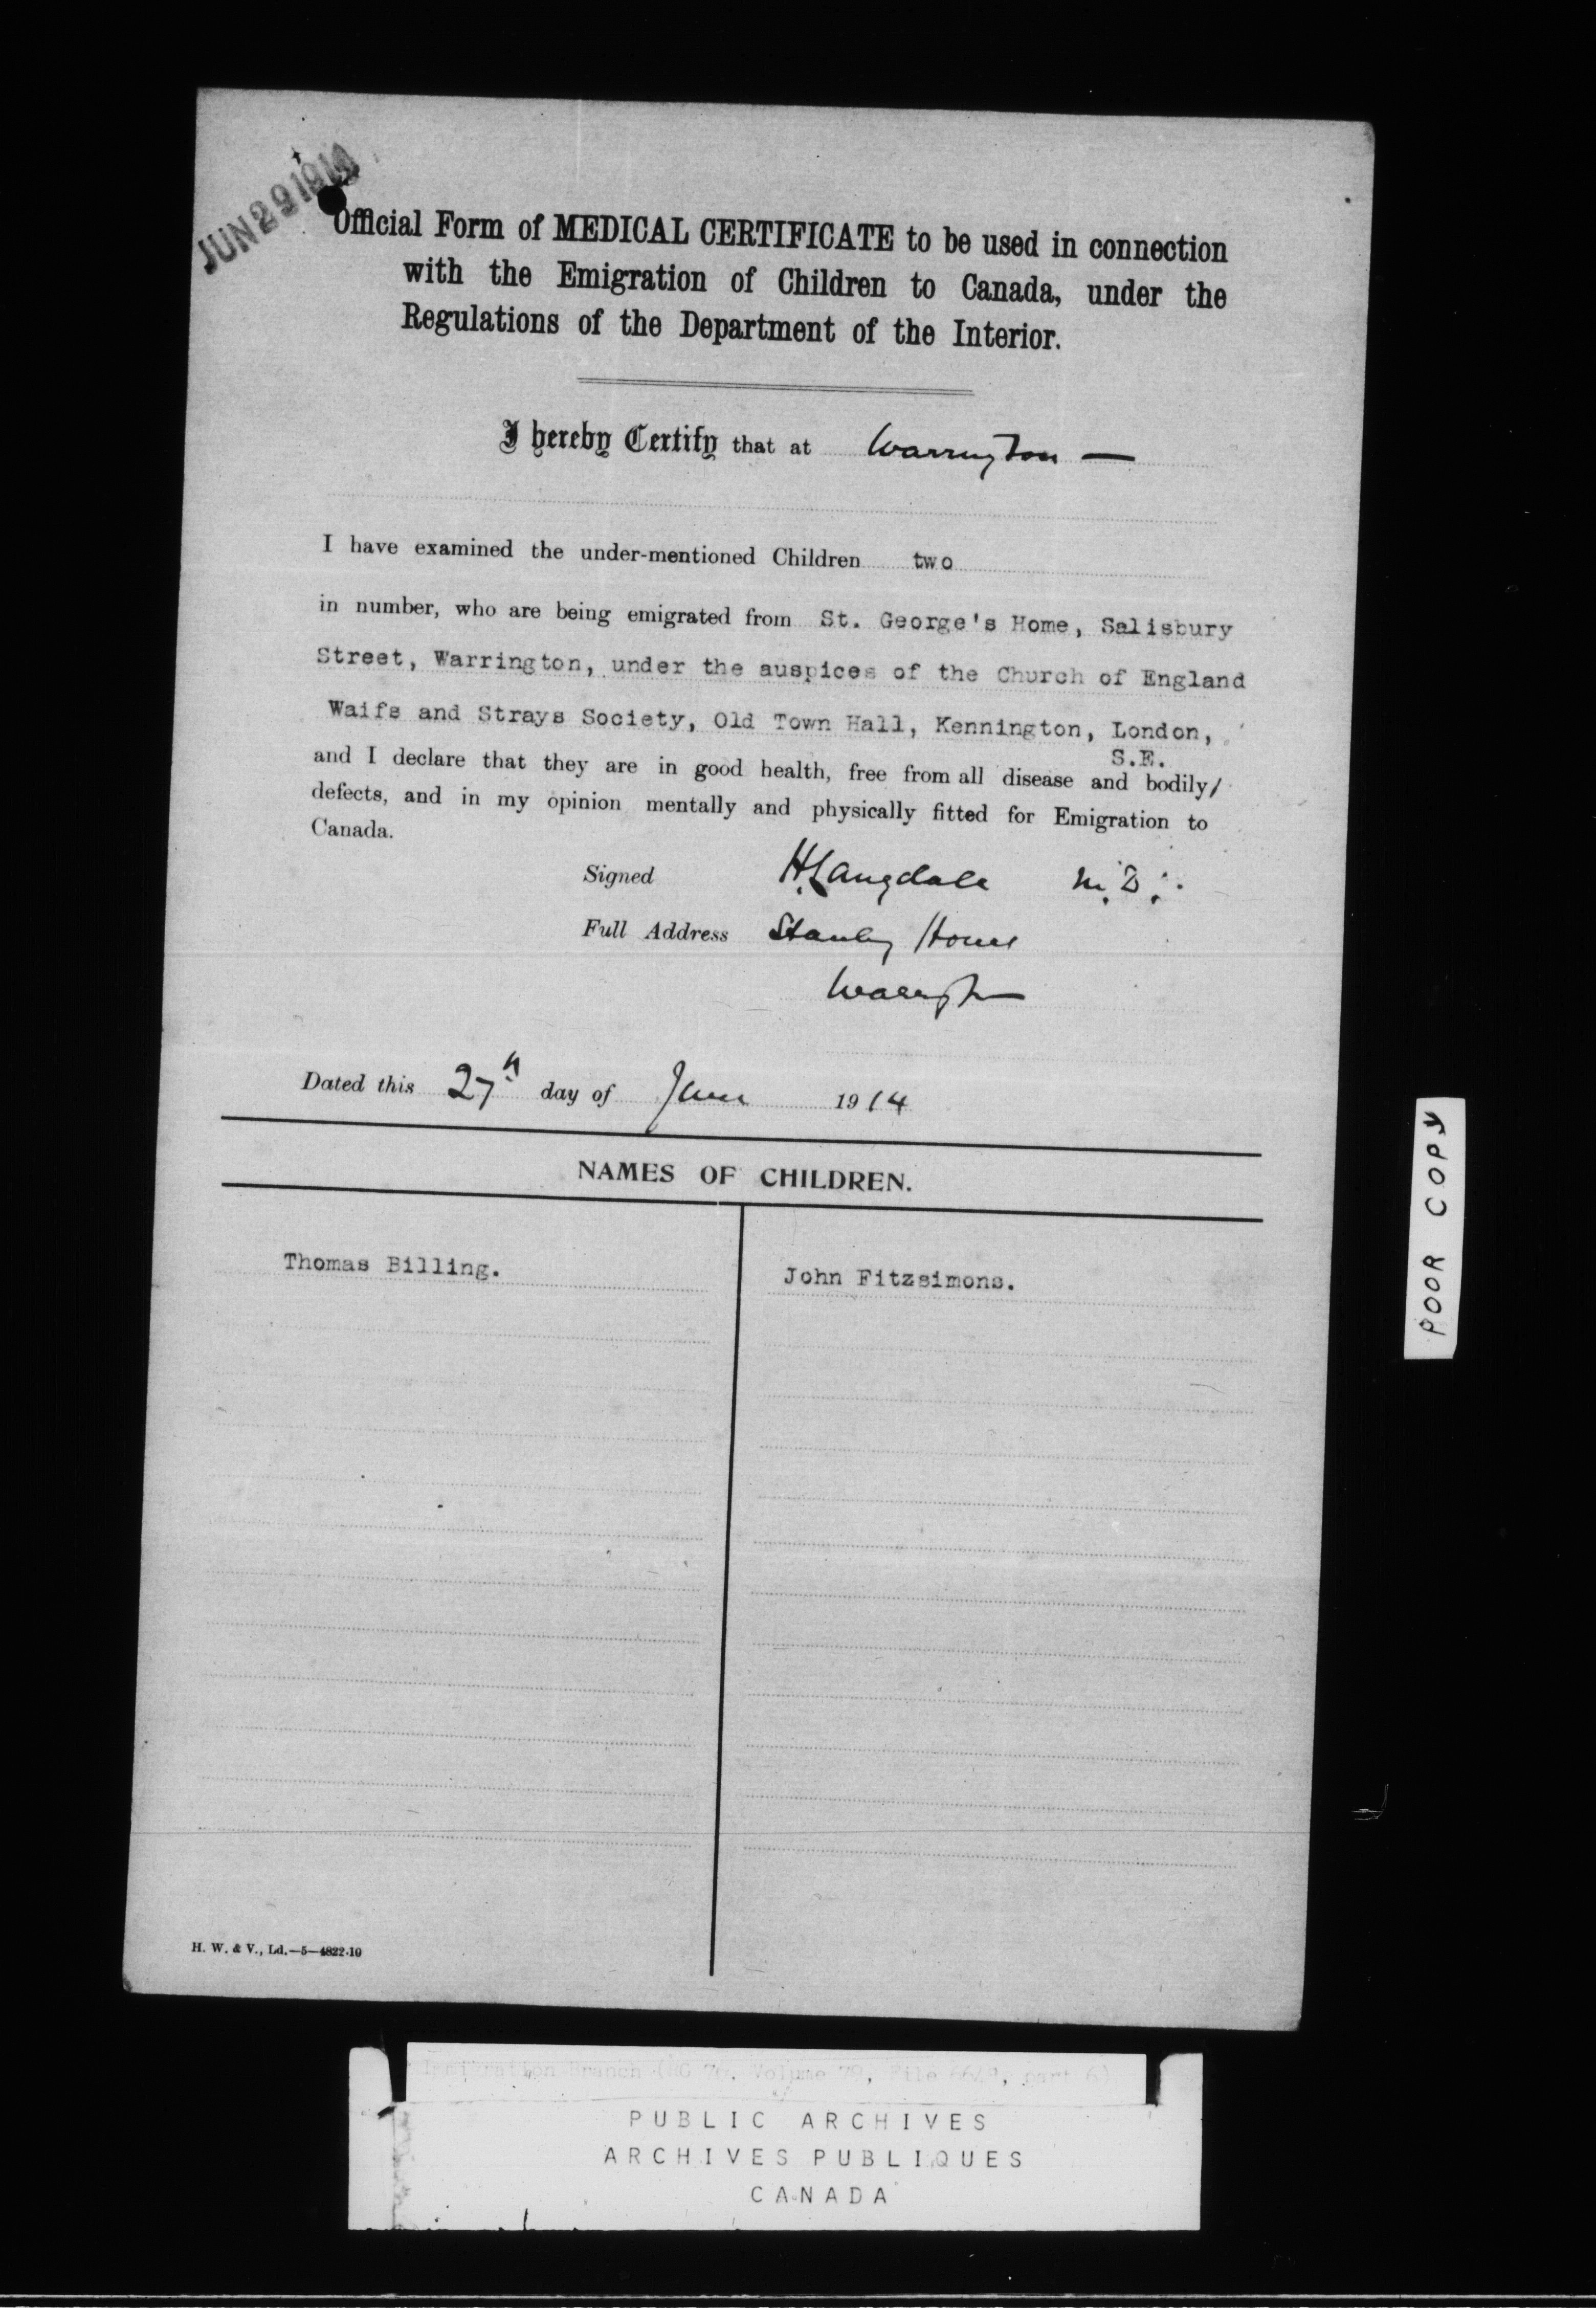 JUN 29 1914
Official Form of MEDICAL CERTIFICATE to be used in connection
with the Emigration of Children to Canada, under the
Regulations of the Department of the Interior.
I hereby Certify that at Warrington —
I have examined the under-mentioned Children two
in number, who are being emigrated from St. George's Home, Salisbury
Street, Warrington, under the auspices of the Church of England
Waifs and Strays Society, Old Town Hall, Kennington, London,
S.E.
and I declare that they are in good health, free from all disease and bodily/
defects, and in my opinion mentally and physically fitted for Emigration to
Canada.
Signed H. Langdale M.D.
Full Address Stanley House
Warrington
Dated this 27th day of June 1914
NAMES OF CHILDREN.
Thomas Billing.
John Fitzsimons.
H. W. & V., Ld.—5—4822-10
POOR COPY
Immigration Branch (RG 76, Volume 79, File 6648, part 6)
PUBLIC ARCHIVES
ARCHIVES PUBLIQUES
CANADA